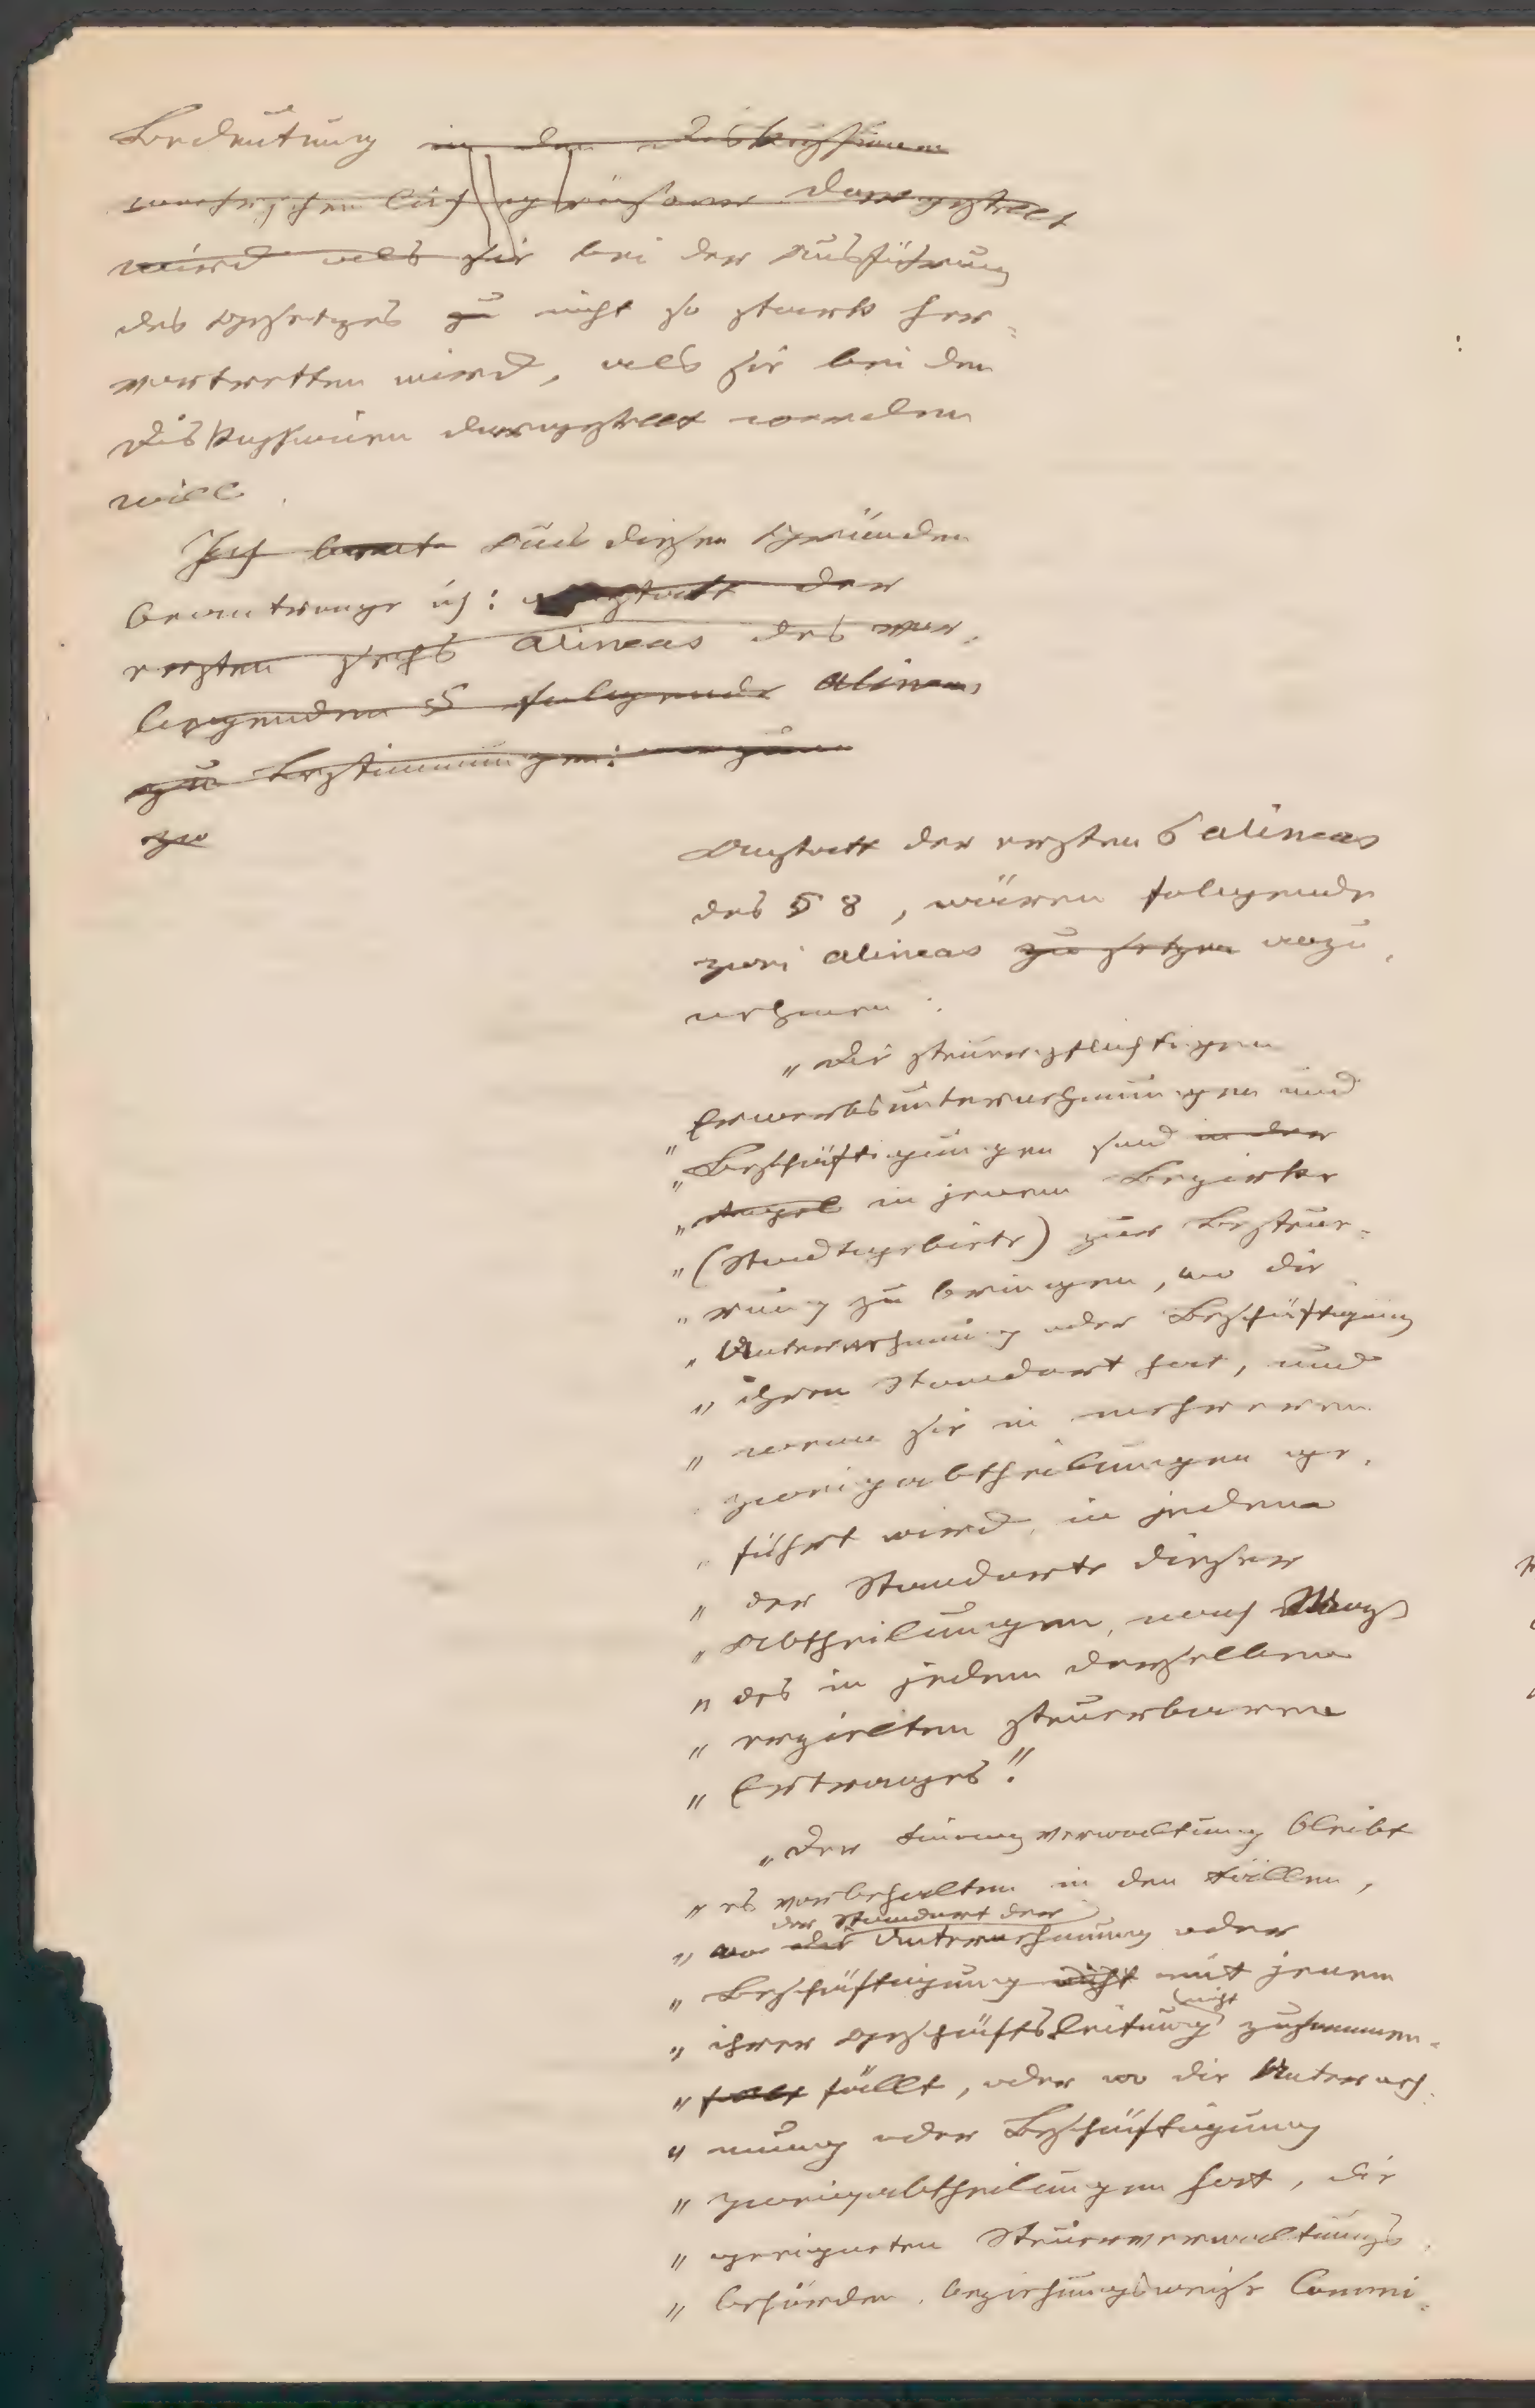 Bedeutung in den Diskussionen
wird als sie bei der Ausführung
des Gesetzes zu nicht so stark her-
vortretten wird, als sie bei den
Diskussionen dargestellt werden
will.
Ich Aus diesen Gründen
beantrage ich: anstatt der
ersten sechs alineas des vor-
liegenden § folgende alineas
zu bestimmungen:
zu
Anstatt der ersten 6 alineas
des § 8, wären folgende
zwei alineas zu setzen anzu-
nehmen:
„Die steuerpflichtigen
„Erwerbsunternehmungen und
„Beschäftigungen sind in der
„Regel in jenem Bezirke
„(Stadtgebiete) zur Besteue-
„rung zu bringen, wo die
„Unternehmung oder Beschäftigung
„ihren Standort hat, und
„wenn sie in mehreren
„Zweigabtheilungen ge-
„führt wird, in jedem
„der Standorte dieser
„Abtheilungen, nach Mass
„des in jedem derselben
„erzielten steuerbaren
„Ertrages".
„Der Finanzverwaltung bleibt
„es vorbehalten in den Fällen,
der Standort der
„wo die Unternehmung oder
„Beschäftigung nicht mit jenem
nicht
„ihrer Geschäftsleitung zusammen-
„fällt, oder wo die Unterneh-
„mung oder Beschäftigung
„Zweigabtheilungen hat, die
„geeigneten Steuerverwaltungs-
„behörden, beziehungsweise Commi-